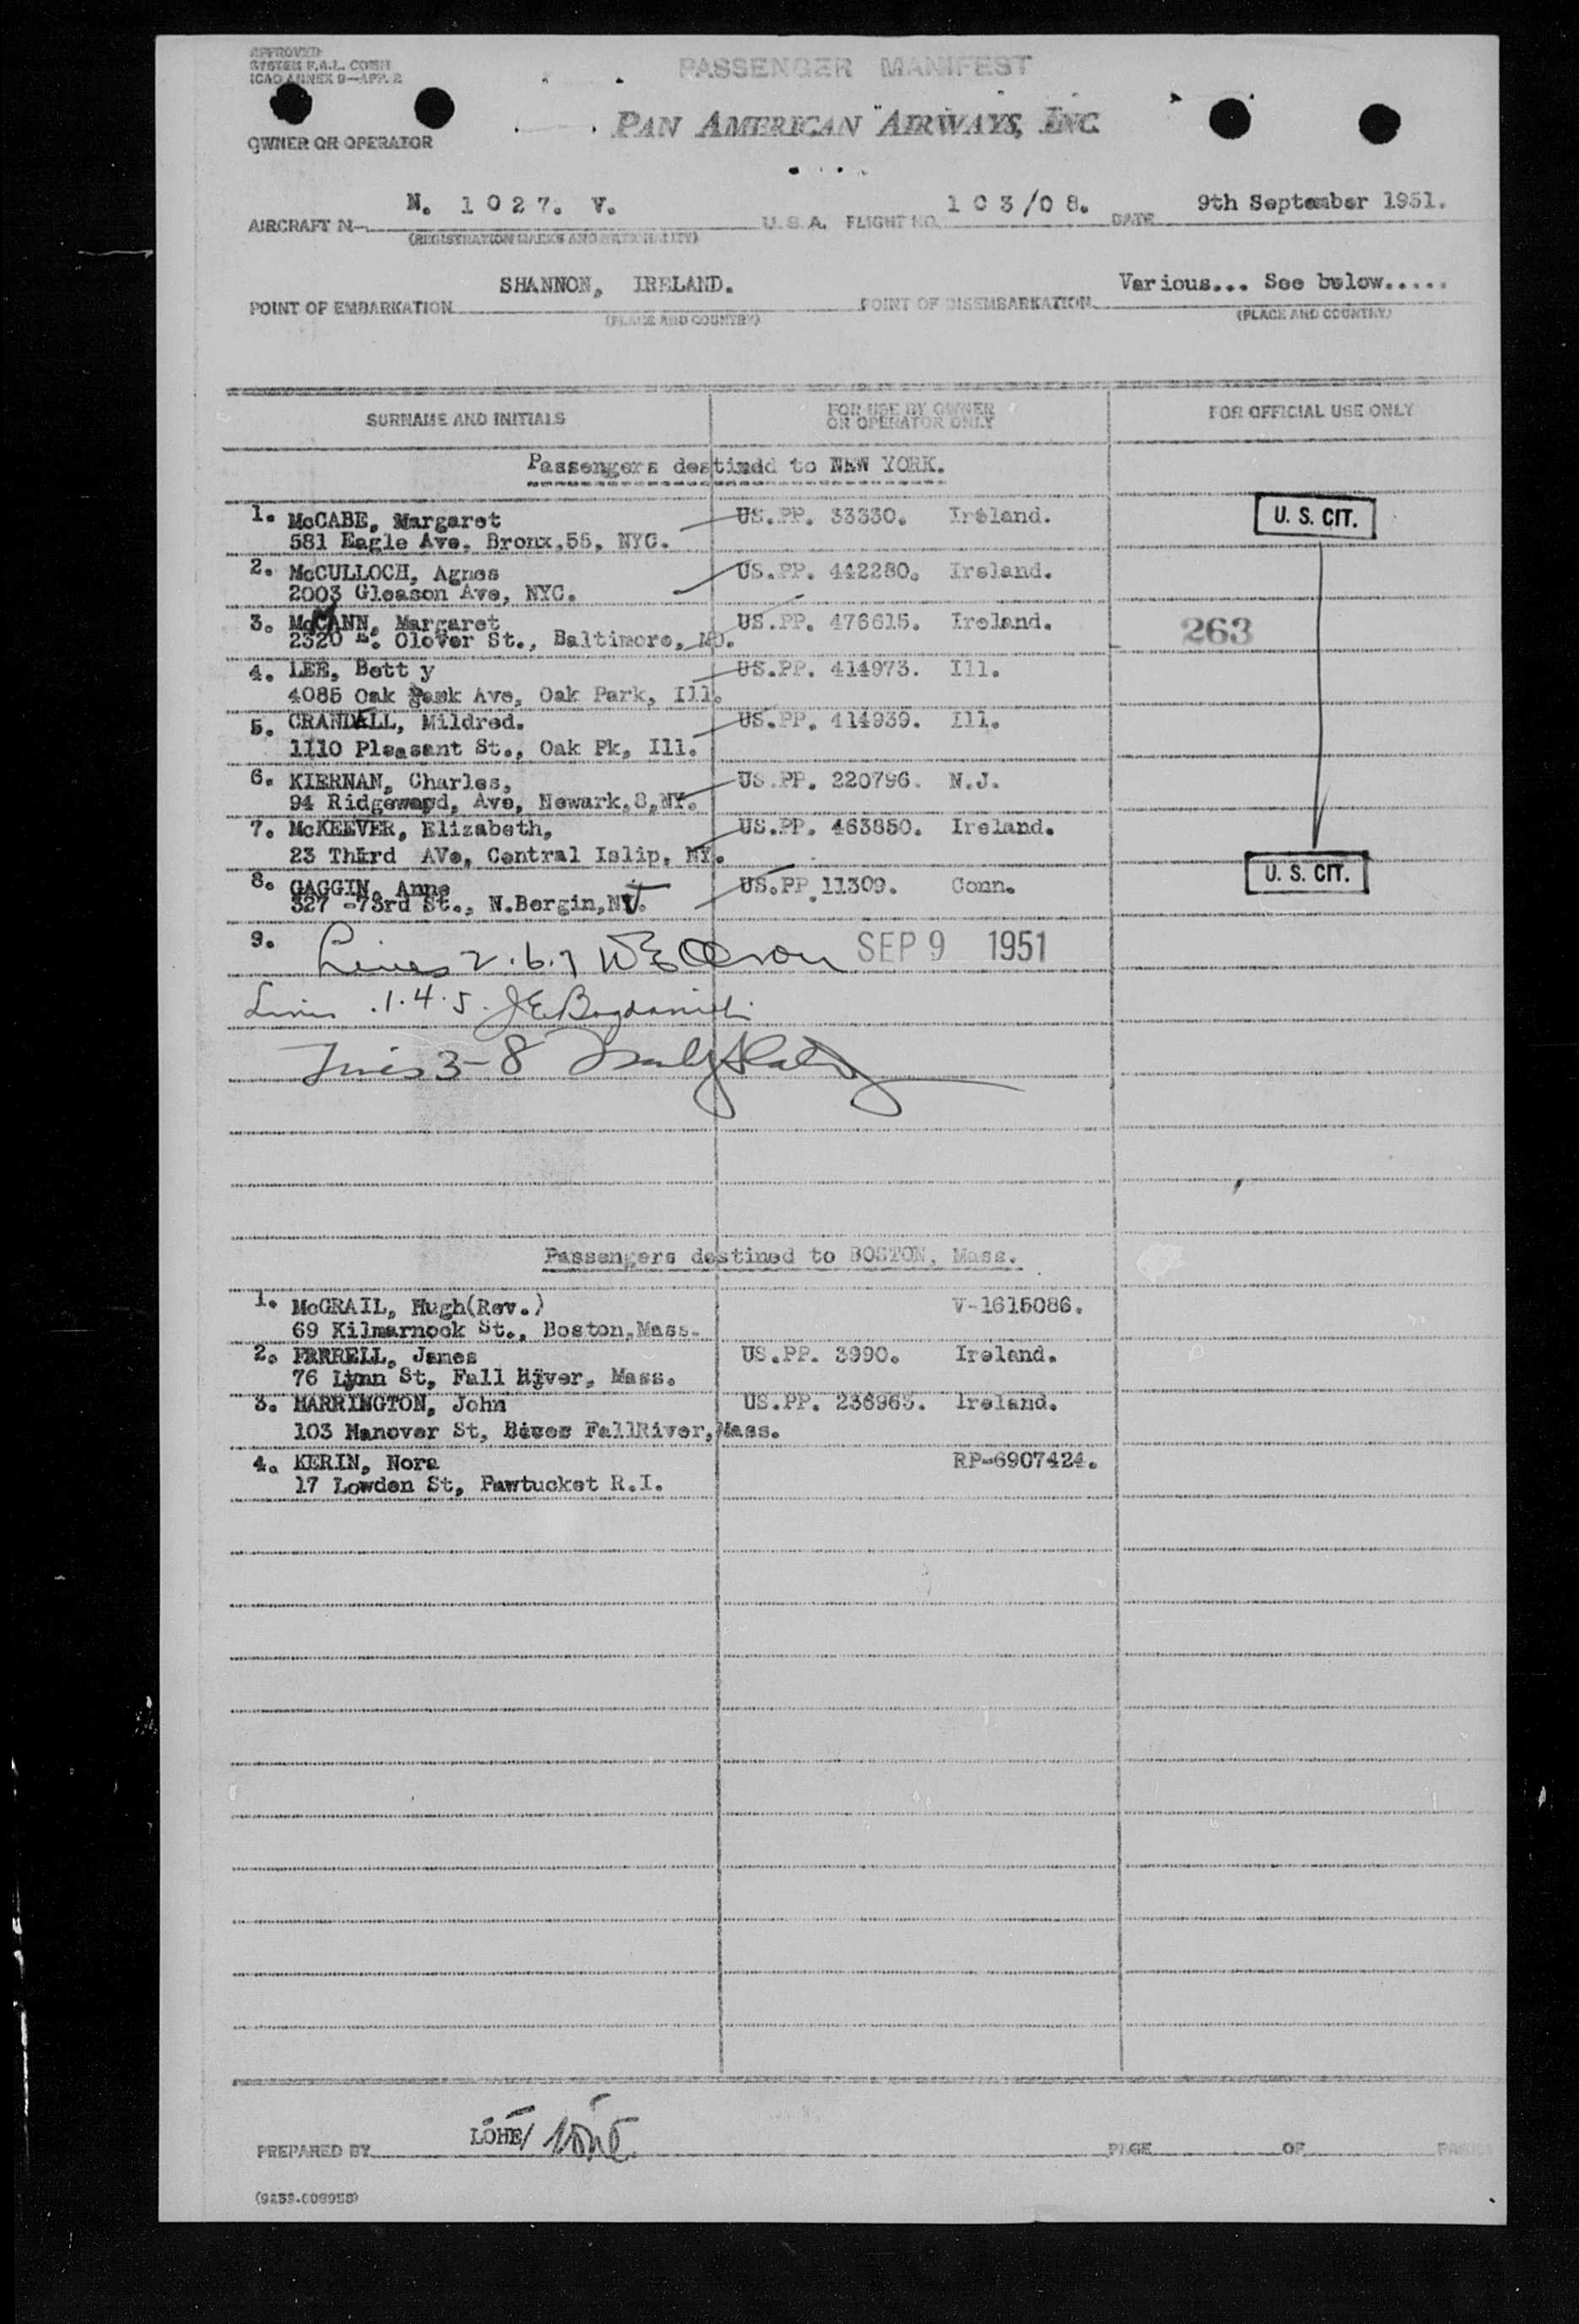 APPROVED
SYSTEM F.A.L. COMM
ICAO ANNEX 9—APP. 2
PASSENGER MANIFEST
OWNER OR OPERATOR
PAN AMERICAN AIRWAYS, INC.
AIRCRAFT N— N. 1 0 2 7. V. U.S.A. FLIGHT NO. 1 0 3 /0 8. DATE 9th September 1951.
(REGISTRATION MARKS AND NATIONALITY)
POINT OF EMBARKATION SHANNON, IRELAND. POINT OF DISEMBARKATION Various... See below.....
(PLACE AND COUNTRY) (PLACE AND COUNTRY)
SURNAME AND INITIALS FOR USE BY OWNER OR OPERATOR ONLY FOR OFFICIAL USE ONLY
Passengers destined to NEW YORK.
1. McCABE, Margaret US.PP. 33330. Ireland. U. S. CIT.
581 Eagle Ave. Bronx,55, NYC.
2. McCULLOCH, Agnes US.PP. 442280. Ireland.
2003 Gleason Ave, NYC.
3. McCANN, Margaret US.PP. 476615. Ireland. 263
2320 E. Olover St., Baltimore, MD.
4. LEE, Bett y US.PP. 414973. Ill.
4085 Oak Ave, Oak Park, Ill.
5. CRANDALL, Mildred. US.PP. 414939. Ill.
1110 Pleasant St., Oak Pk, Ill.
6. KIERNAN, Charles, US.PP. 220796. N.J.
94 Ave, Newark,8,NY.
7. McKEEVER, Elizabeth, US.PP. 463850. Ireland.
23 Third AVe, Central Islip, NY.
8. GAGGIN, Anne US.PP.11309. Conn. U. S. CIT.
327 -73rd St., N.Bergin,NJ.
9. Lines 2.6.7 SEP 9 1951
Lines .1.4.5.
Lines 3-8
Passengers destined to BOSTON, Mass.
1. McGRAIL, Hugh(Rev.) V-1615086.
69 Kilmarnock St., Boston,Mass.
2. FARRELL, James US.PP. 3990. Ireland.
76 Lynn St, Fall River, Mass.
3. HARRINGTON, John US.PP. 236963. Ireland.
103 Hanover St, FallRiver,Mass.
4. KERIN, Nora RP-6907424.
17 Lowden St, Pawtucket R.I.
PREPARED BY LOHE/ PAGE OF